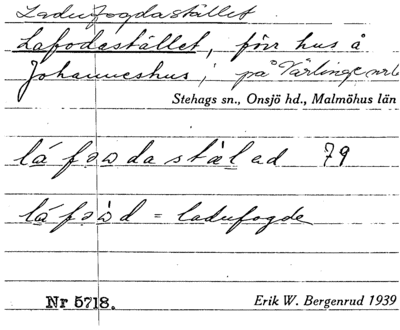 Ladufogdastället
Lafodastället, förr hus å
Johanneshus; på Värlinge nr 6
Stehags sn., Onsjö hd., Malmöhus län
láfəωdastälad 79
láfəωd = ladufogde
Nr 5718.
Erik W. Bergenrud 1939